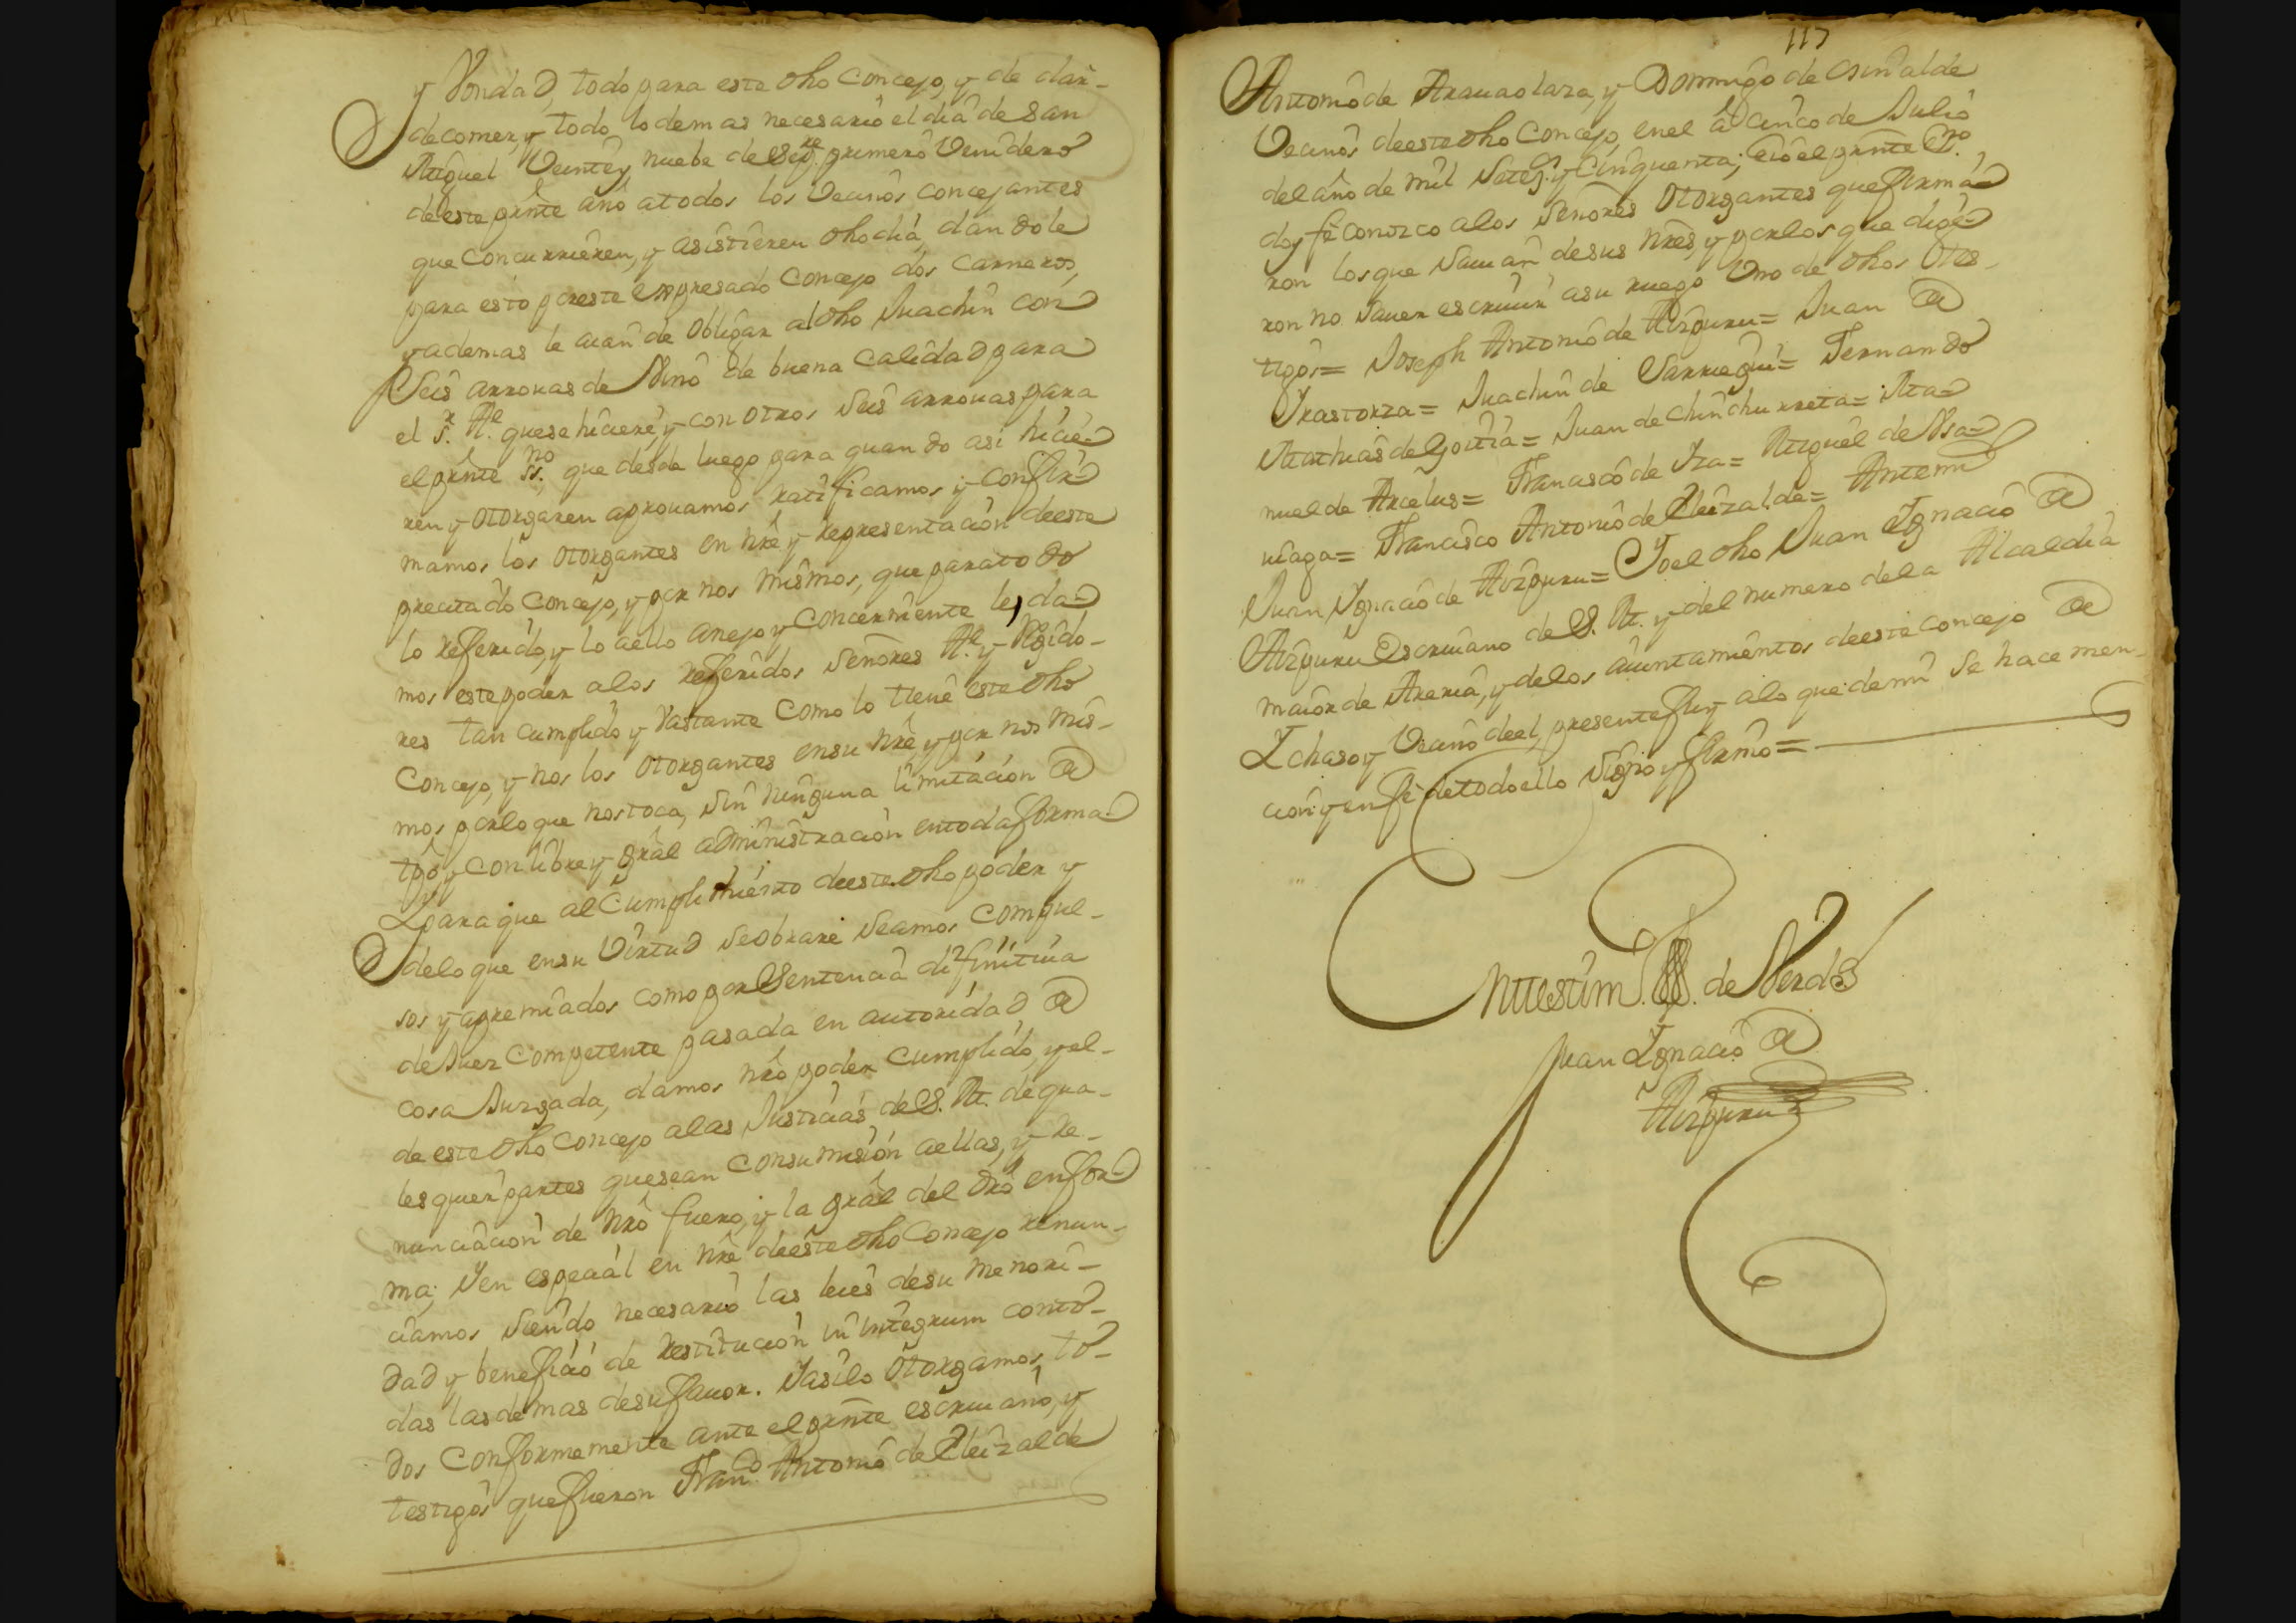 y Vondad, todo para este dho Concejo, y de dar-
de comer, y todo lo demas necesario el dia de San
Miguel Veinte y nueba de Sepre. primero Venidero
de este prnte año a todos los Vecinos concejantes
que Concurrieren, y asistieren dho dia, dandole
para esto por este expresado Concejo dos Carneros,
y ademas le aian de obligar al dho Juachin con
Seis arrouas de Vino de buena Calidad para
el Sr. Ale. que se hiciere, y con otros Seis arrouas para
el prnte SSno. que desde luego para quando asi hicie-
ren y otorgaren aprouamos ratificamos y confir-
mamos los otorgantes en nre y representacion de este
precitado Concejo, y por nos mismos, que para todo
lo refferido, y lo a ello anejo y Concerniente les da-
mos este poder a los refferidos Señores Ale. y Regido-
res tan Cumplido y Vastante Como lo tiene este dho
Concejo, y nos los otorgantes en su nre y por nos mis-
mos por lo que nos toca, sin ninguna limitacion
y con libre y gral administracion en toda forma
Y para que al Cumplimiento de este dho poder y
de lo que en su Virtud se obrare Seamos compul-
sos y apremiados como por Sentencia difinitiua
de Juez Competente pasada en autoridad de
cosa Juzgada, damos nro poder Cumplido, y el-
de este dho Concejo a las Justicias de S. M. de qua-
lesquier partes que sean Con sumision a ellas, y re-
nunciacion de nro fuero, y la gral del dro en for-
ma; Y en especial en nre de este dho Concejo renun-
ciamos siendo necesario las leies de su menori-
dad y beneficio de restitucion in integrum con to-
das las demas de su fauor. Y asi lo otorgamos to-
dos Conformemente ante el prnte escriuano, y
testigos que fueron Franco. Antonio de Eleizalde
117
Antonio de Aramaolaza, y Domingo de Osinalde
Vecinos de este dho Concejo, en el a cinco de Julio
del año de mil Seteos. y Cinquenta; e io el prnte Esno.
doy fe conozco a los Señores Otorgantes que firma-
ron los que Sauian de sus nres, y por los que dige-
ron no Sauer escriuir a su ruego Uno de dhos tes-
tigos= Joseph Antonio de Aizpuru= Juan de
Irastorza= Juachin de Sarriegui= Fernando
Mathias de Goitia= Juan de Chinchurreta= Ma-
nuel de Arcelus= Francisco de Iza= Miguel de Usa-
uiaga= Francisco Antonio de Eleizalde= Antemi
Juan Ignacio de Aizpuru= Yo el dho Juan Ignacio de
Aizpuru Escriuano de S. M. y del numero de la Alcaldia
maior de Areria, y de los aiuntamientos de este concejo de
Ichaso y Vecino de el, presente fui y a lo que de mi se hace men-
cion y en fe de todo ello Signo y firmo=
En testim. de Verdad
Juan Ignacio de
Aizpuru